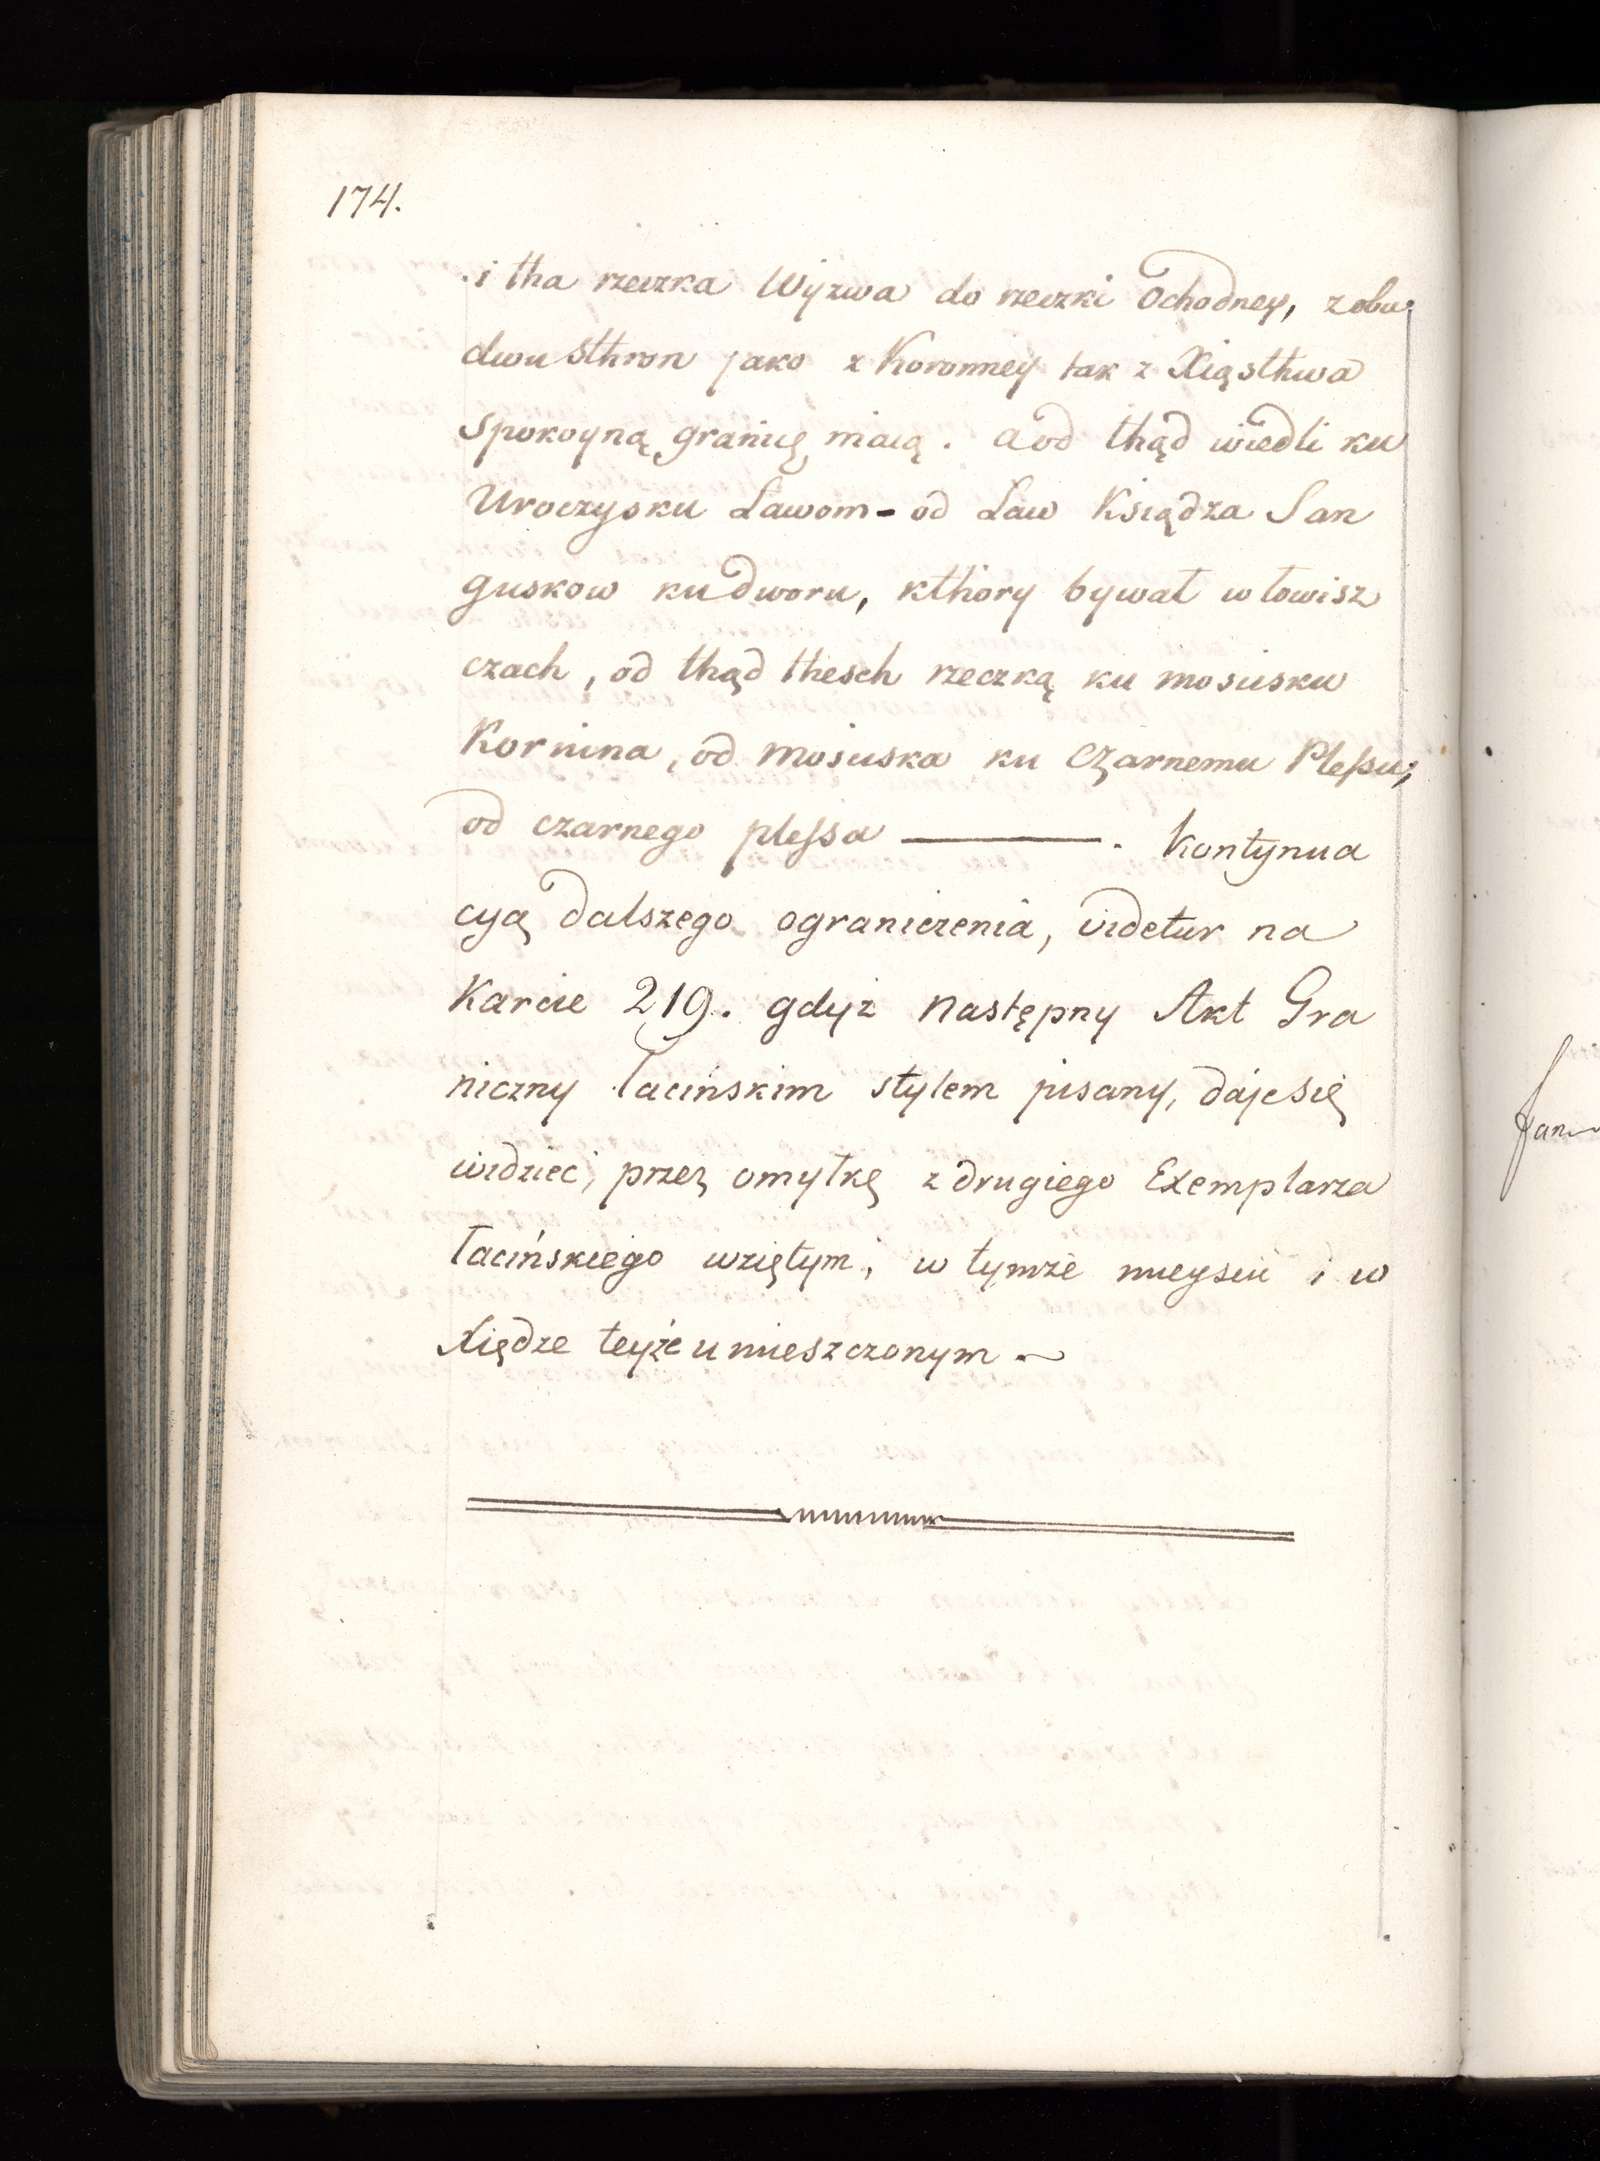 174.
i tha rzeczka Wyzwa do rzeczki Ochodney, z obu
dwu sthron jako z Koronney tak z Xiąsthwa
spokoyną granicę maią. a od thąd wiedli ku
Uroczysku Lawom - od Law Książdza San
guskow ku dworu, kthory bywał w łowisz
czach, od thąd thesch rzeczką ku mosusku
Kornina, od mosuska ku Czarnemu Plessu,
od czarnego plessa ———. Kontynua
cyą dalszego ograniczenia, videtur na
Karcie 219. gdyż następny Akt Gra
niczny łacińskim stylem pisany, daje się
widzieć, przez omyłkę z drugiego Exemplarza
łacińskiego wziętym, w tymże mieyscu i w
Xiędze teyże umieszczonym.